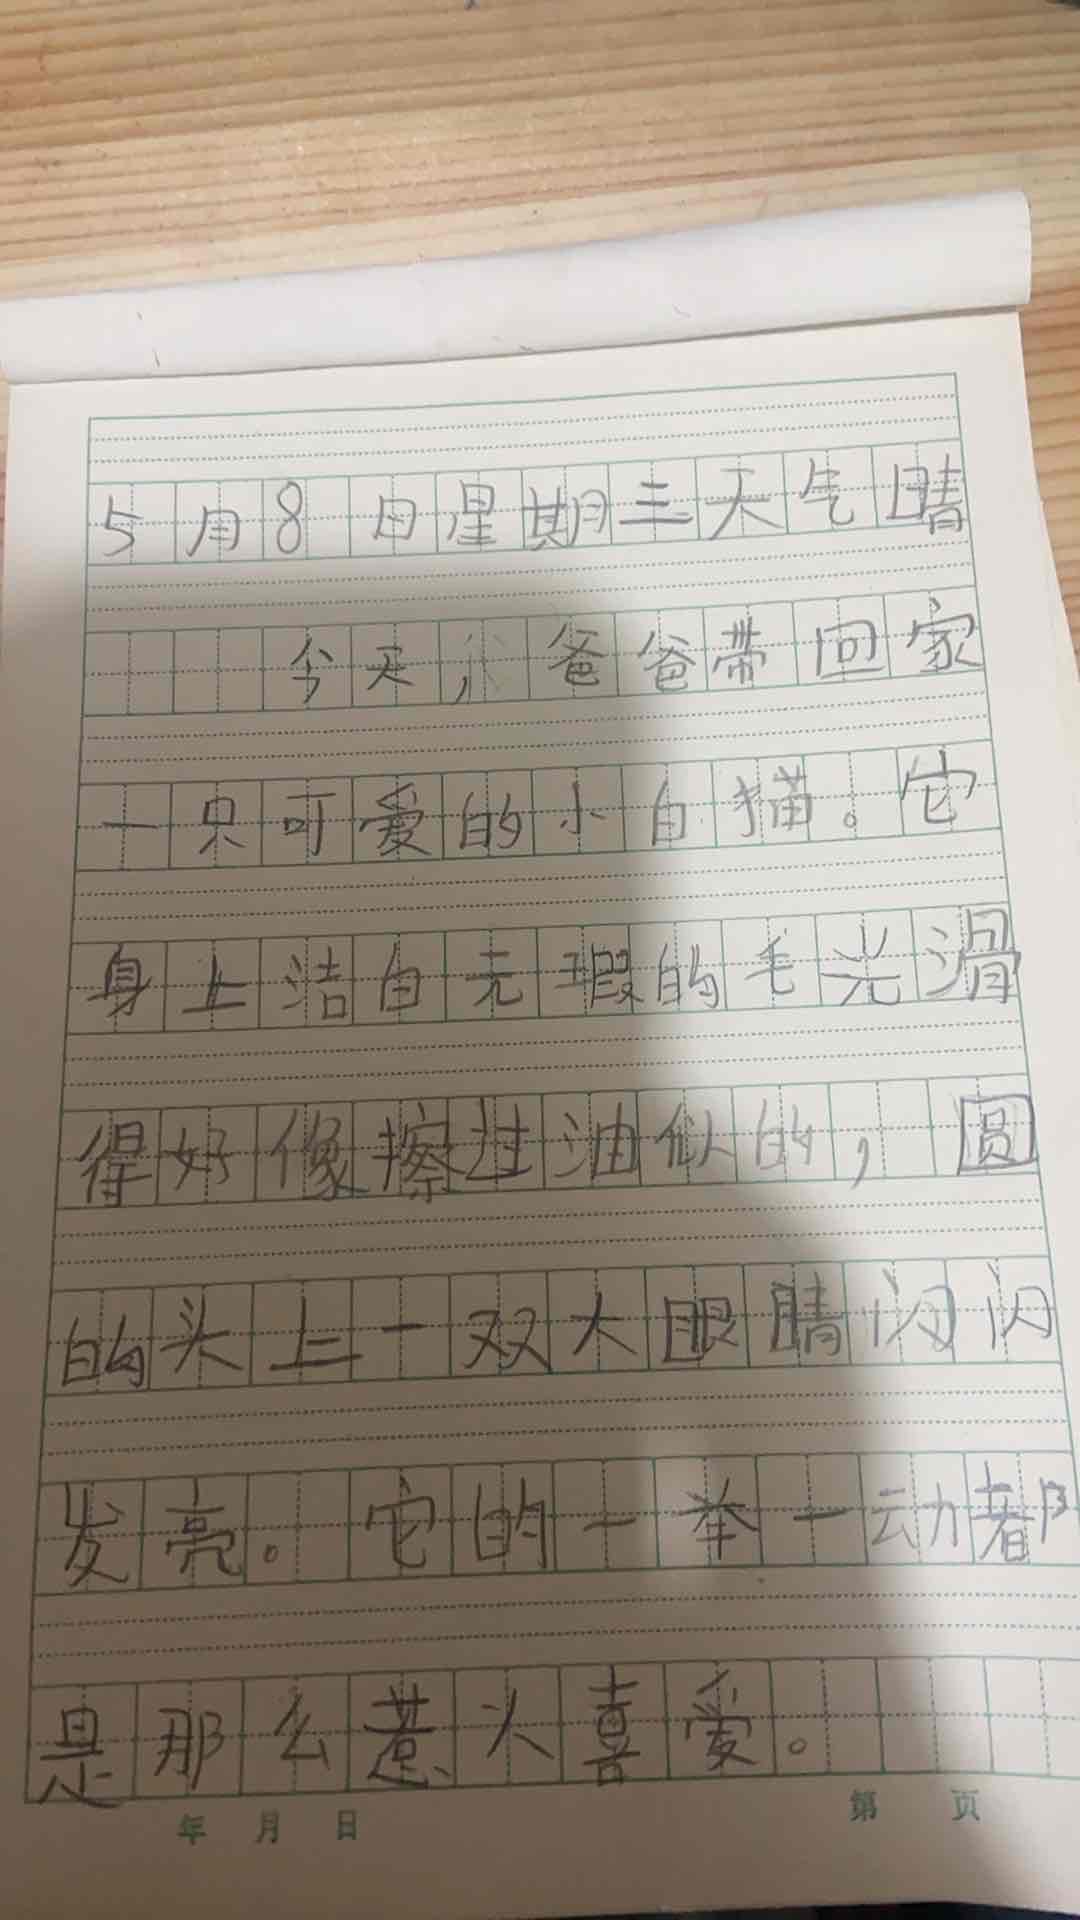 5月8日星期三天气晴
今天，爸爸带回家
一只可爱的小白猫。它
身上洁白无瑕的毛光滑
得好像擦过油似的，圆
的头上一双大眼睛闪闪
发亮。它的一举一动都
是那么惹人喜爱。
年 月 日 第 页